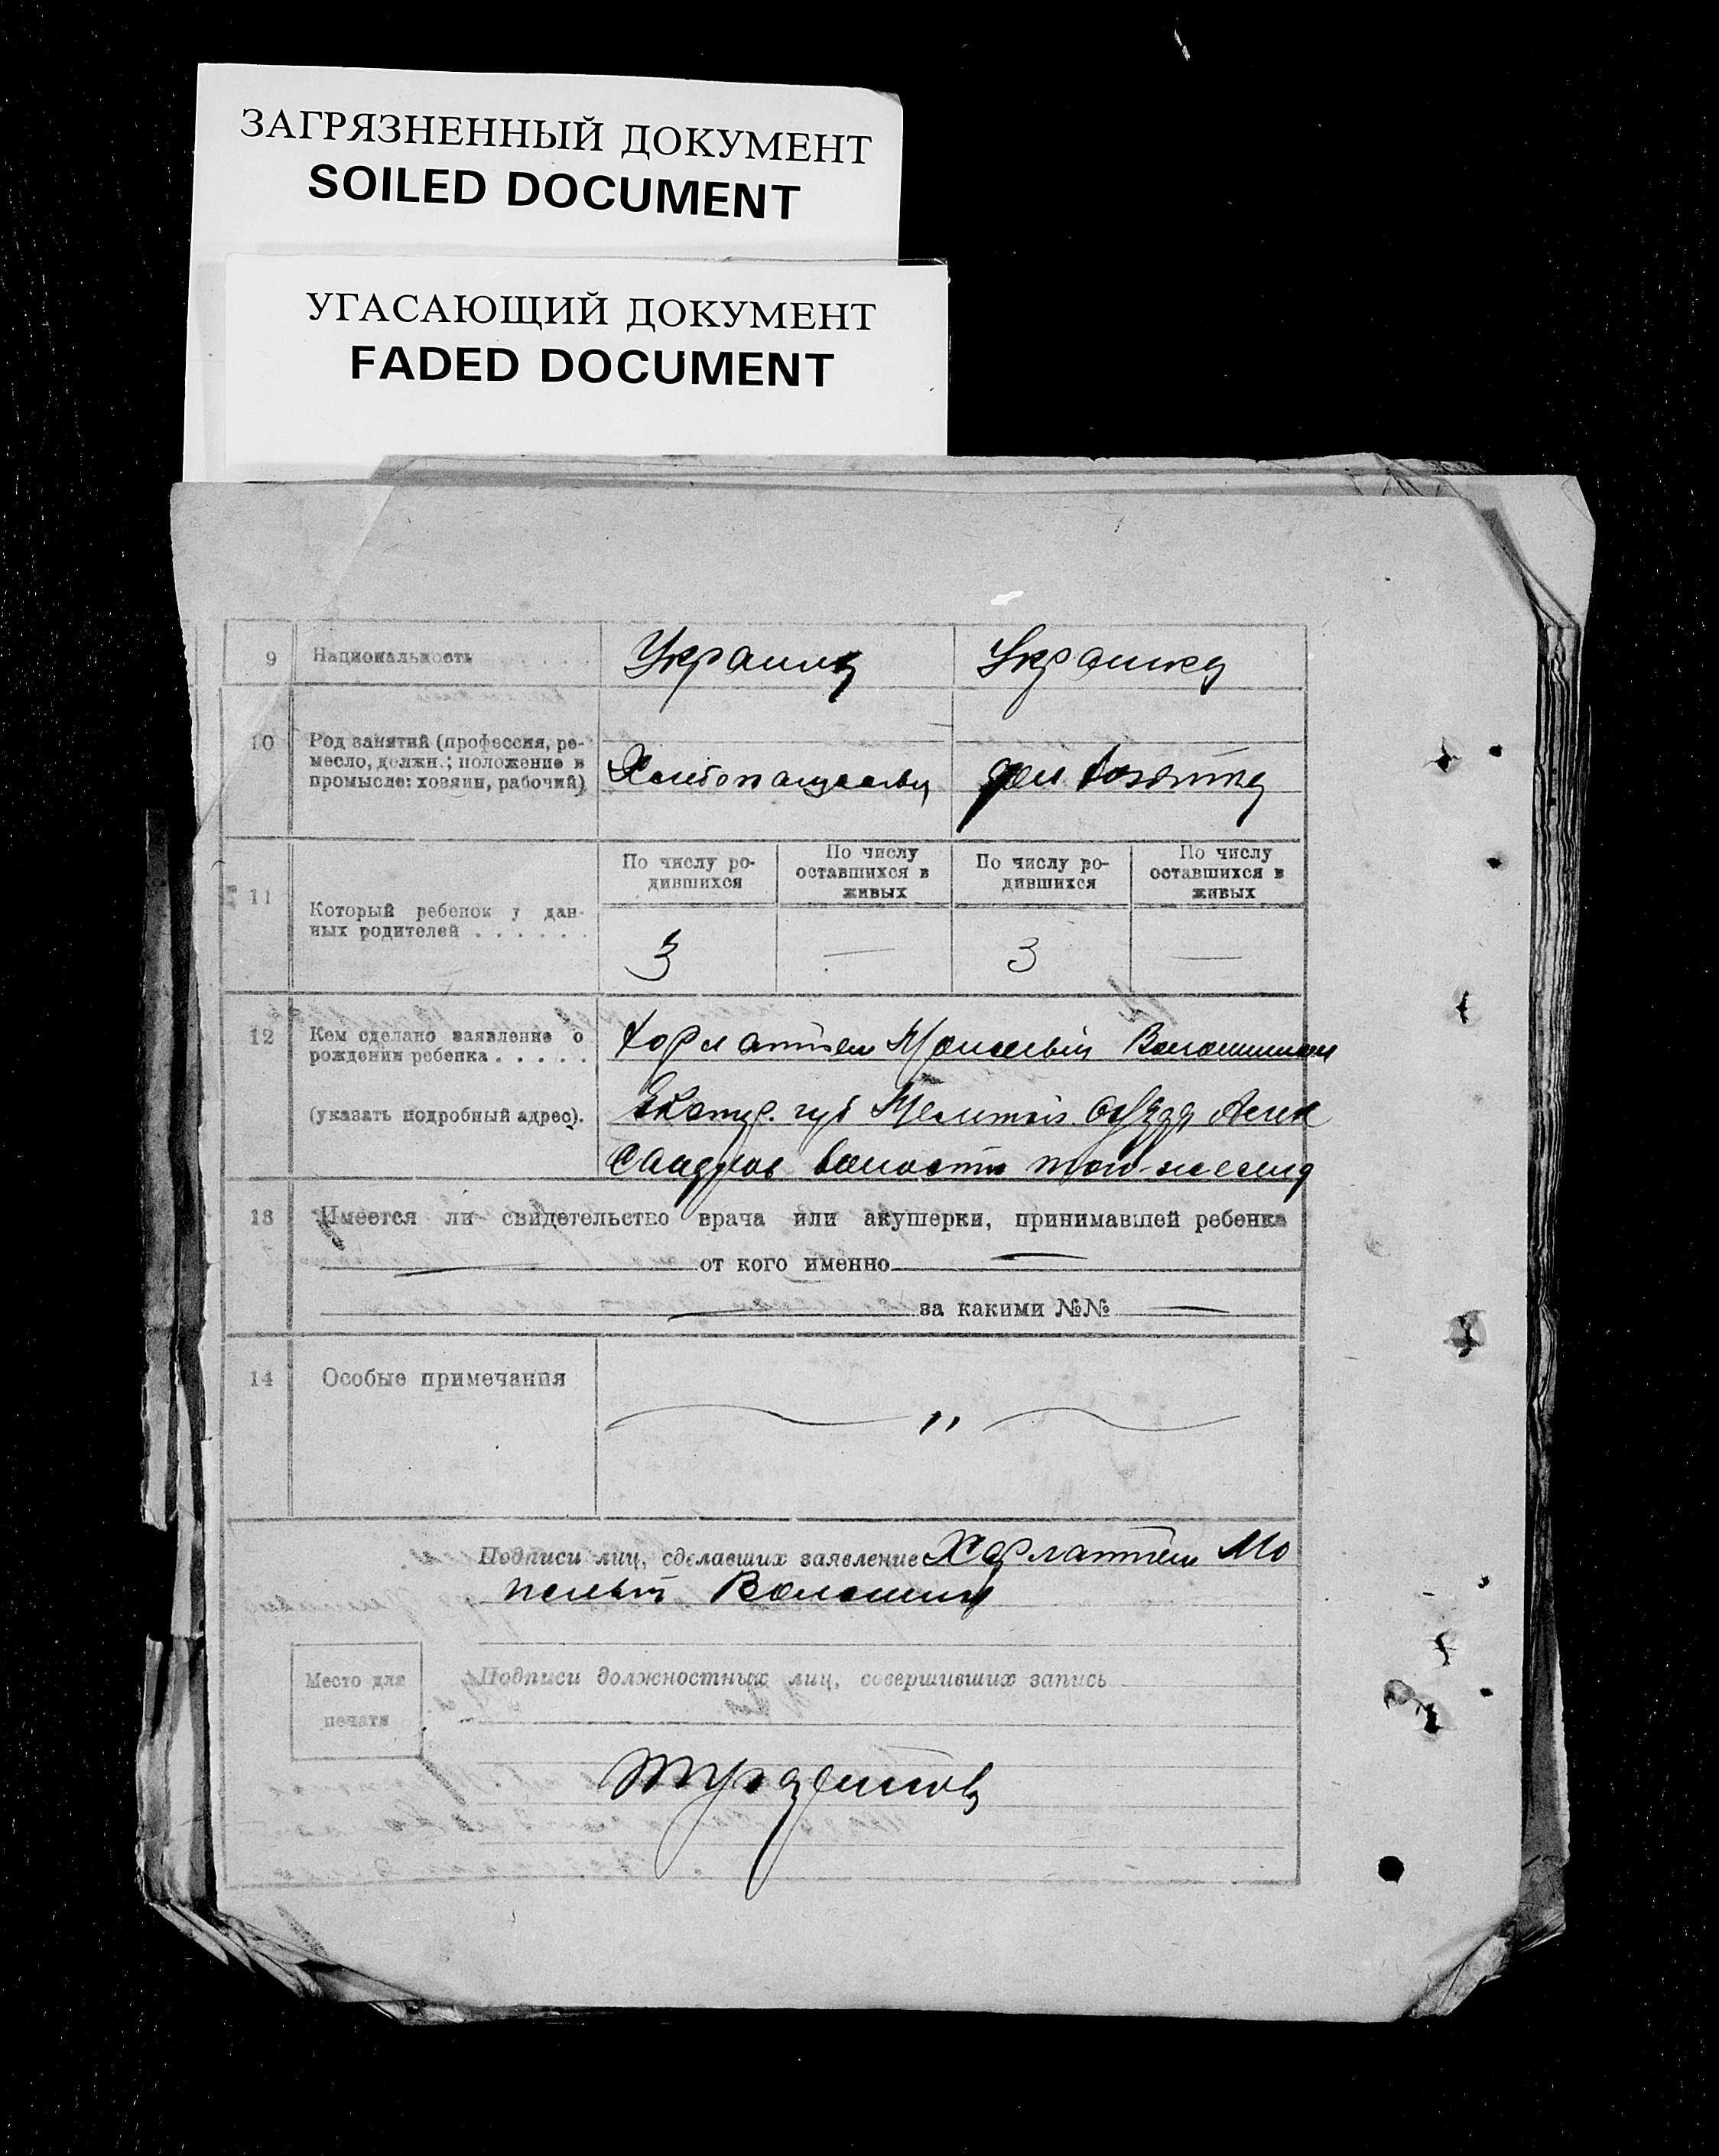 ЗАГРЯЗНЕННЫЙ ДОКУМЕНТ
SOILED DOCUMENT
УГАСАЮЩИЙ ДОКУМЕНТ
FADED DOCUMENT
9 Национальность . . . . Украинц Украинка
10 Род занятий (профессия, ре-
месло, должн.; положение в
промысле: хозяин, рабочий)
Хлебопашец дом. хозяйка
11 Который ребенок у дан-
ных родителей . . . . . .
По числу ро-
дившихся
По числу
оставшихся в
живых
По числу ро-
дившихся
По числу
оставшихся в
живых
3 — 3 —
12 Кем сделано заявление о
рождении ребенка . . . . .
(указать подробный адрес).
Волошиным
губ Мелитоп. Алек
волости того-же
13 Имеется ли свидетельство врача или акушерки, принимавшей ребенка
— от кого именно —
— за какими №№ —
14 Особые примечания
— " —
Подписи лиц, сделавших заявление Харлампий Мо
Волошин
Место для
печати
Подписи должностных лиц, совершивших запись